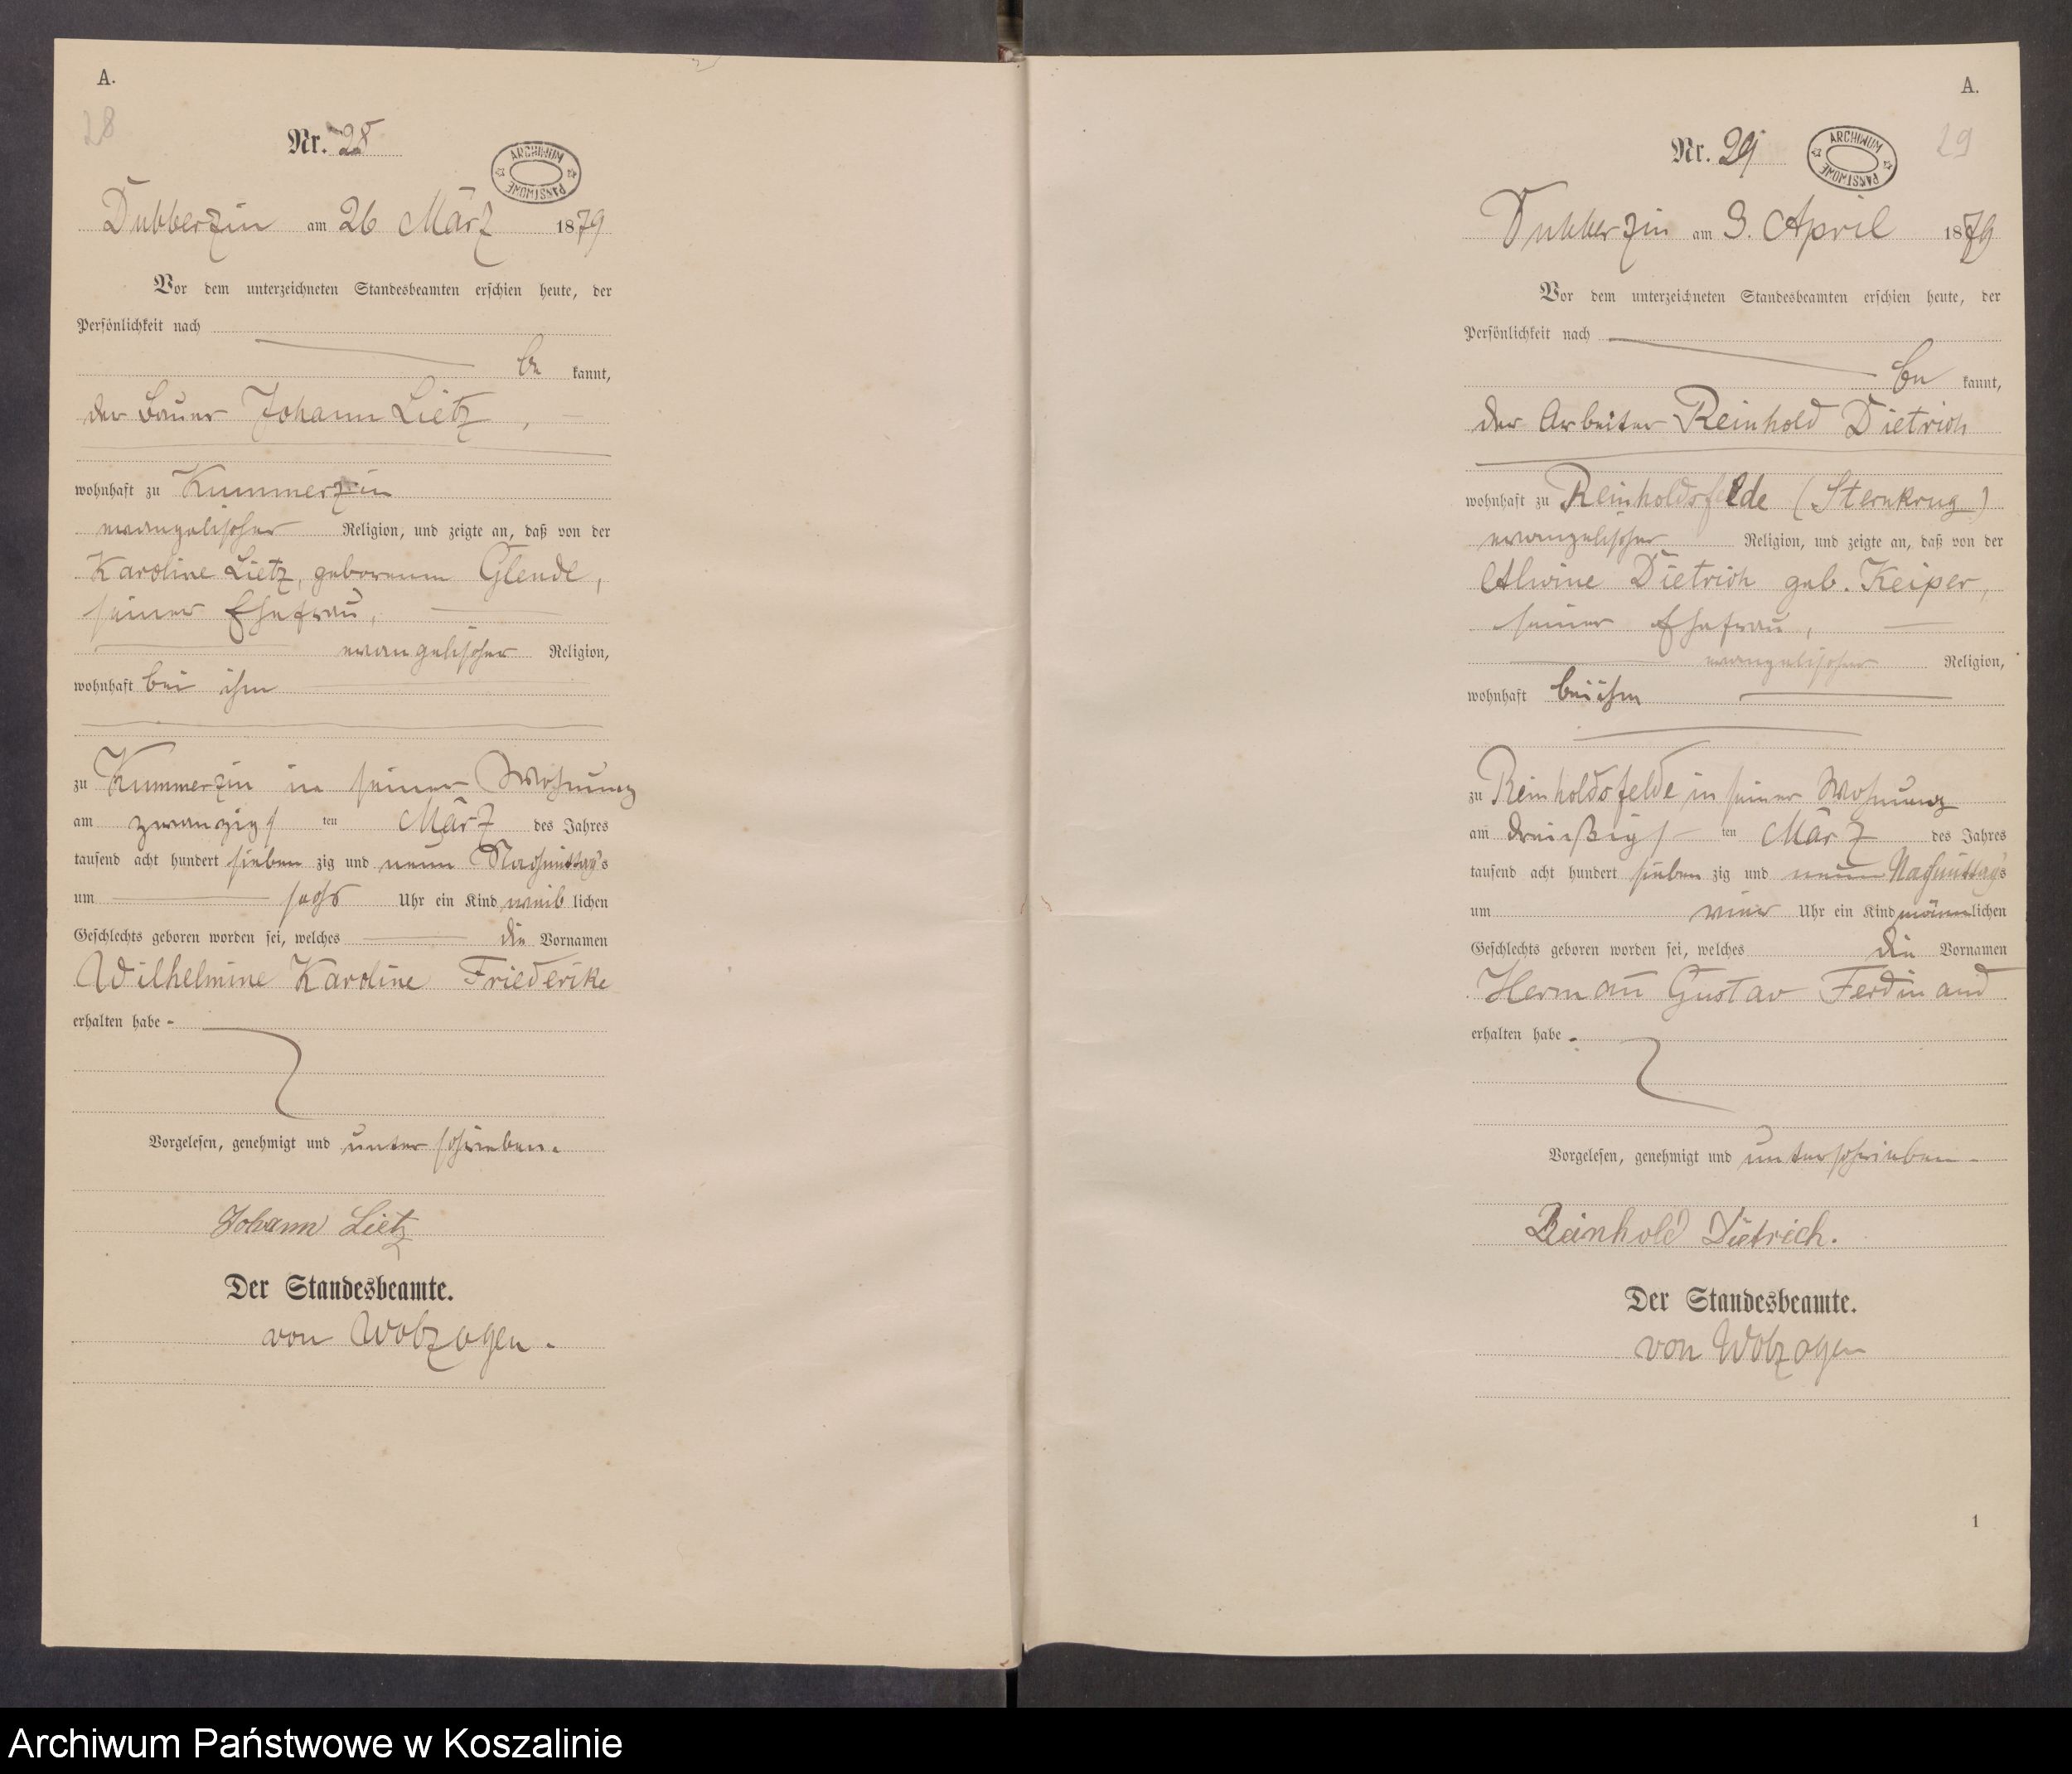 A.
28
Nr. 28
ARCHIWUM PAŃSTWOWE
Dubberzin am 26 März 1879
Vor dem unterzeichneten Standesbeamten erschien heute, der
Persönlichkeit nach
be kannt,
der Bauer Johann Lietz,
wohnhaft zu Kummerzin
evangelischer Religion, und zeigte an, daß von der
Karoline Lietz, geborenen Glende,
seiner Ehefrau,
evangelischer Religion,
wohnhaft bei ihm
zu Kummerzin in seiner Wohnung
am zwanzigs ten März des Jahres
tausend acht hundert sieben zig und neun Nachmittags
um sechs Uhr ein Kind weib lichen
Geschlechts geboren worden sei, welches die Vornamen
Wilhelmine Karoline Friederike
erhalten habe -
Vorgelesen, genehmigt und unterschrieben.
Johann Lietz
Der Standesbeamte.
von Wolzogen.
A.
29
Nr. 29
ARCHIWUM PAŃSTWOWE
Dubberzin am 3. April 1879
Vor dem unterzeichneten Standesbeamten erschien heute, der
Persönlichkeit nach
be kannt,
der Arbeiter Reinhold Dietrich
wohnhaft zu Reinholdsfelde (Sternkrug)
evangelischer Religion, und zeigte an, daß von der
Alwine Dietrich geb. Keiper,
seiner Ehefrau,
evangelischer Religion,
wohnhaft bei ihm
zu Reinholdsfelde in seiner Wohnung
am dreißigs ten März des Jahres
tausend acht hundert sieben zig und neun Nachmittags
um vier Uhr ein Kind männlichen
Geschlechts geboren worden sei, welches die Vornamen
Hermann Gustav Ferdinand
erhalten habe -
Vorgelesen, genehmigt und unterschrieben -
Reinhold Dietrich.
Der Standesbeamte.
von Wolzogen
1
Archiwum Państwowe w Koszalinie